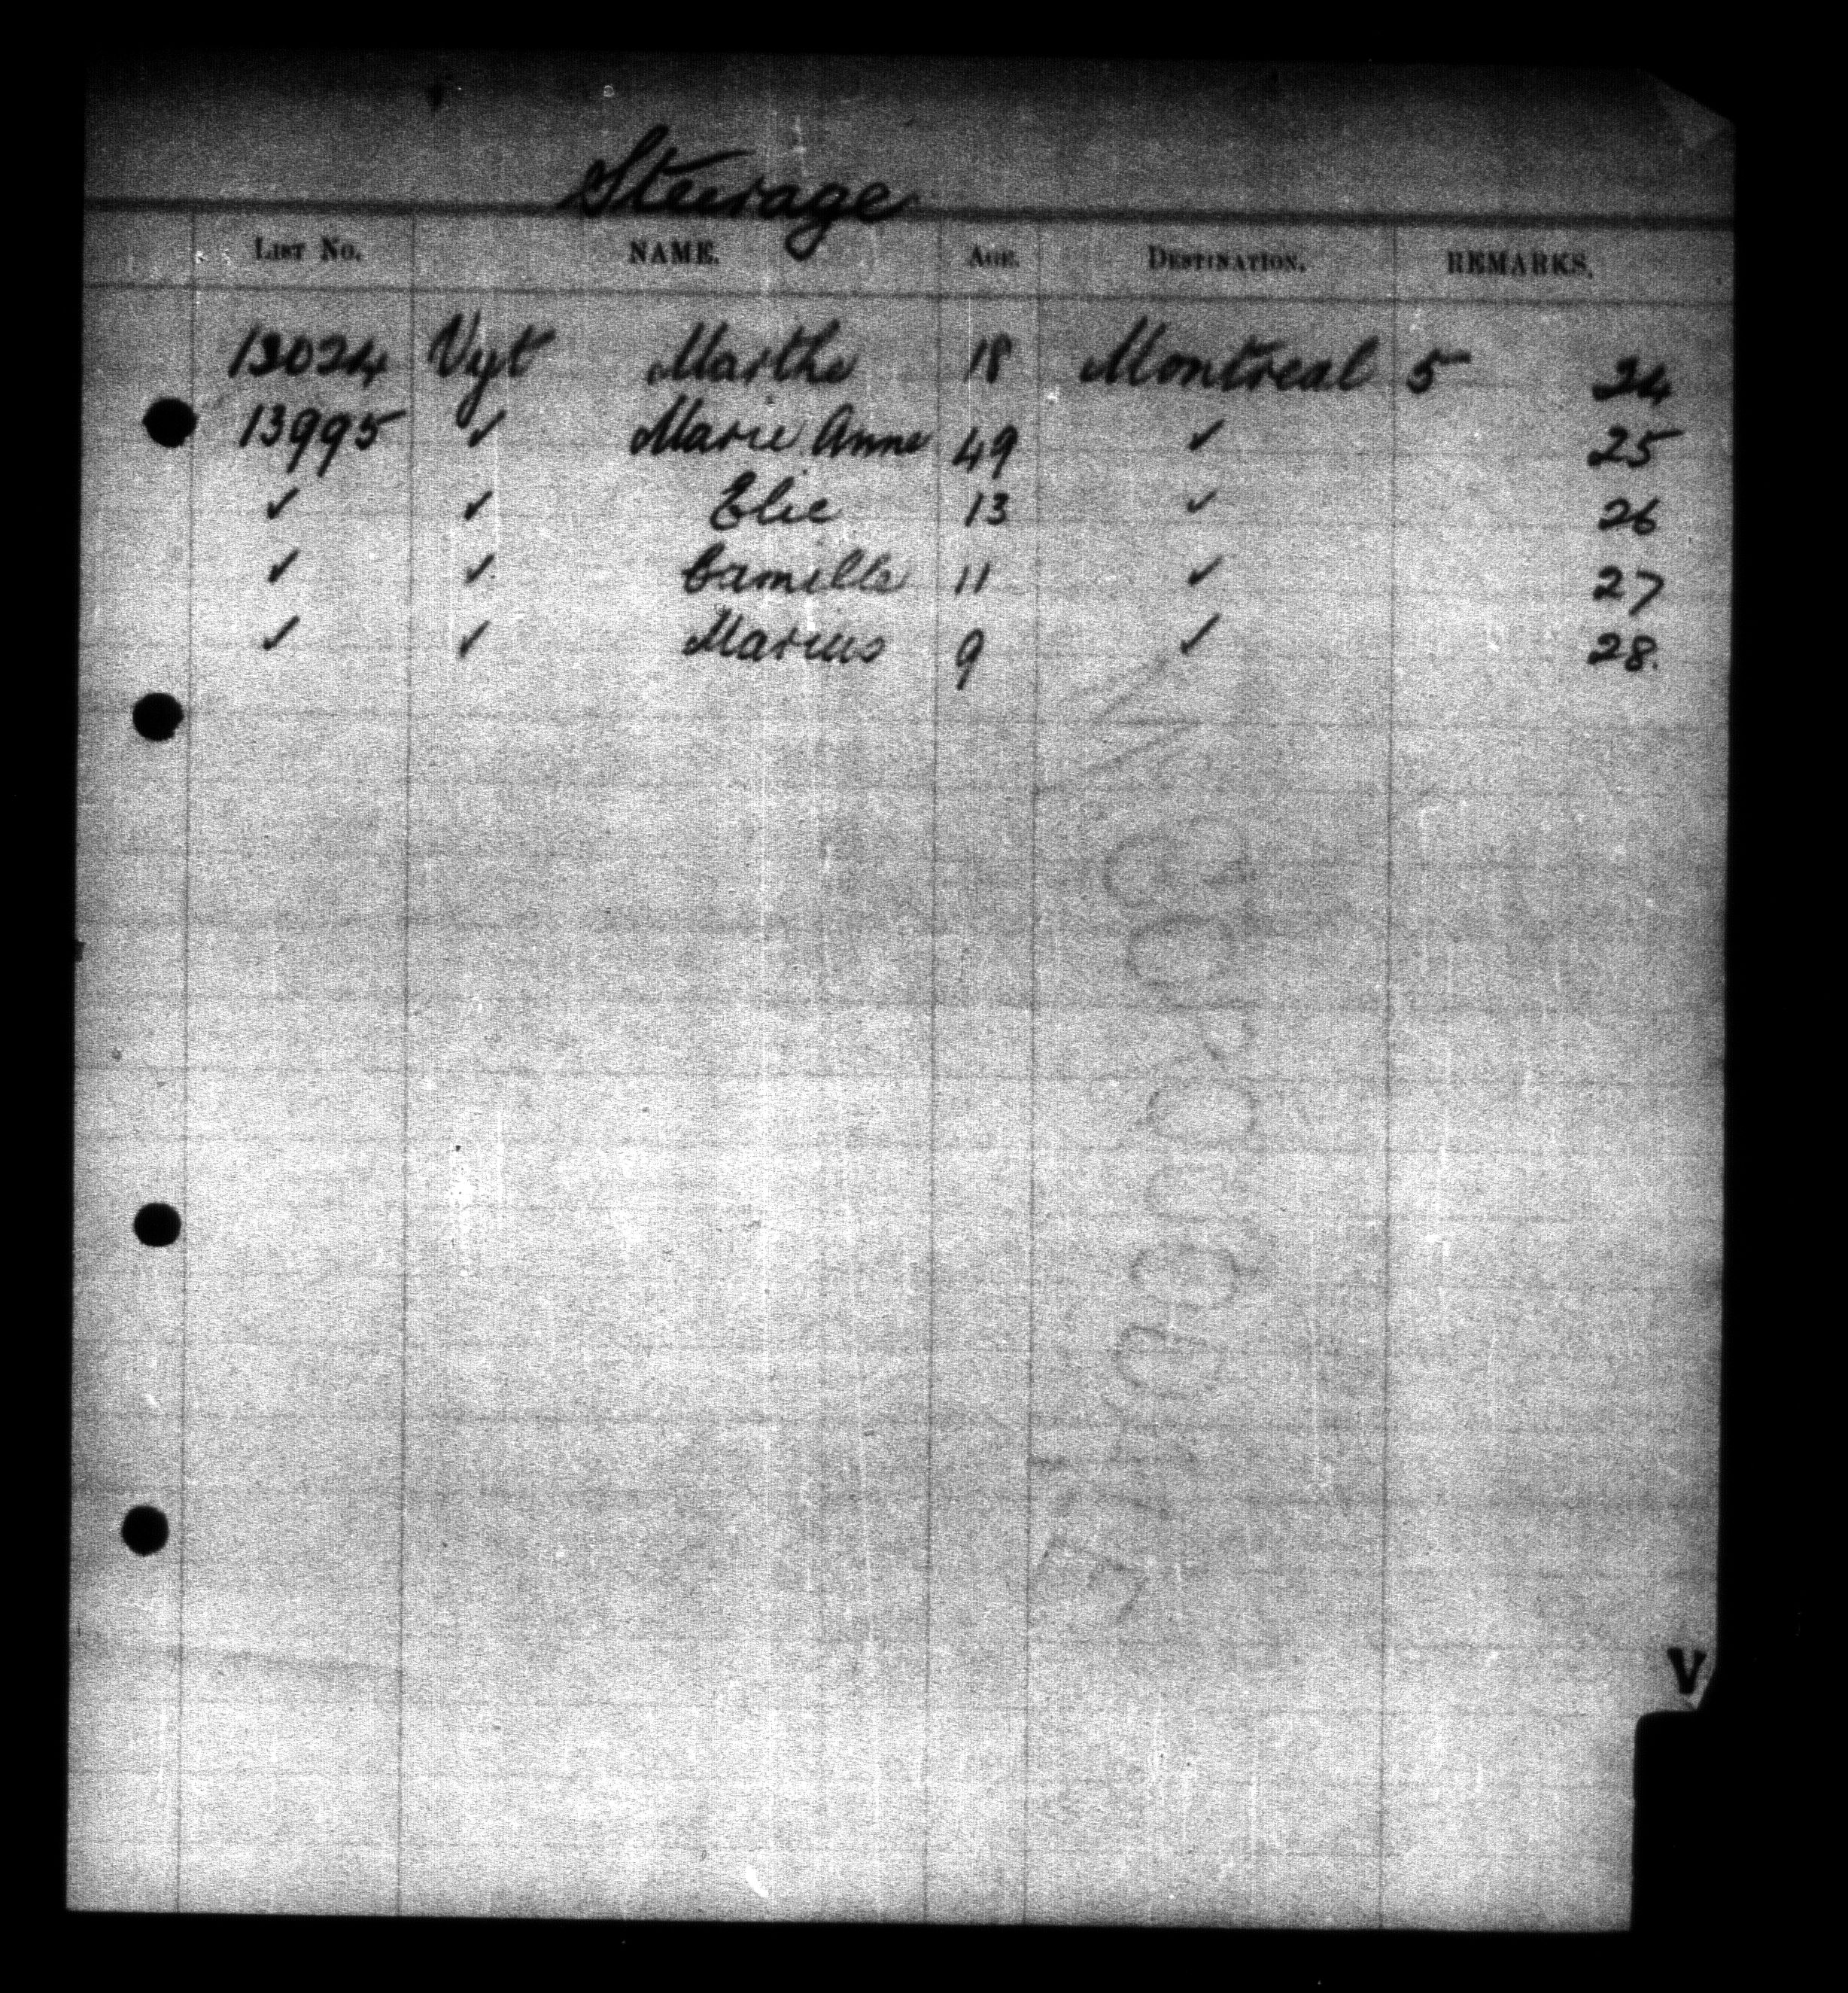 Steerage
LIST No. NAME. AGE. DESTINATION. REMARKS.
13024 Vyt Marthe 18 Montreal 5 24
13995 ✓ Marie Anne 49 ✓ 25
✓ ✓ Elie 13 ✓ 26
✓ ✓ Camille 11 ✓ 27
✓ ✓ Marius 9 ✓ 28.
V